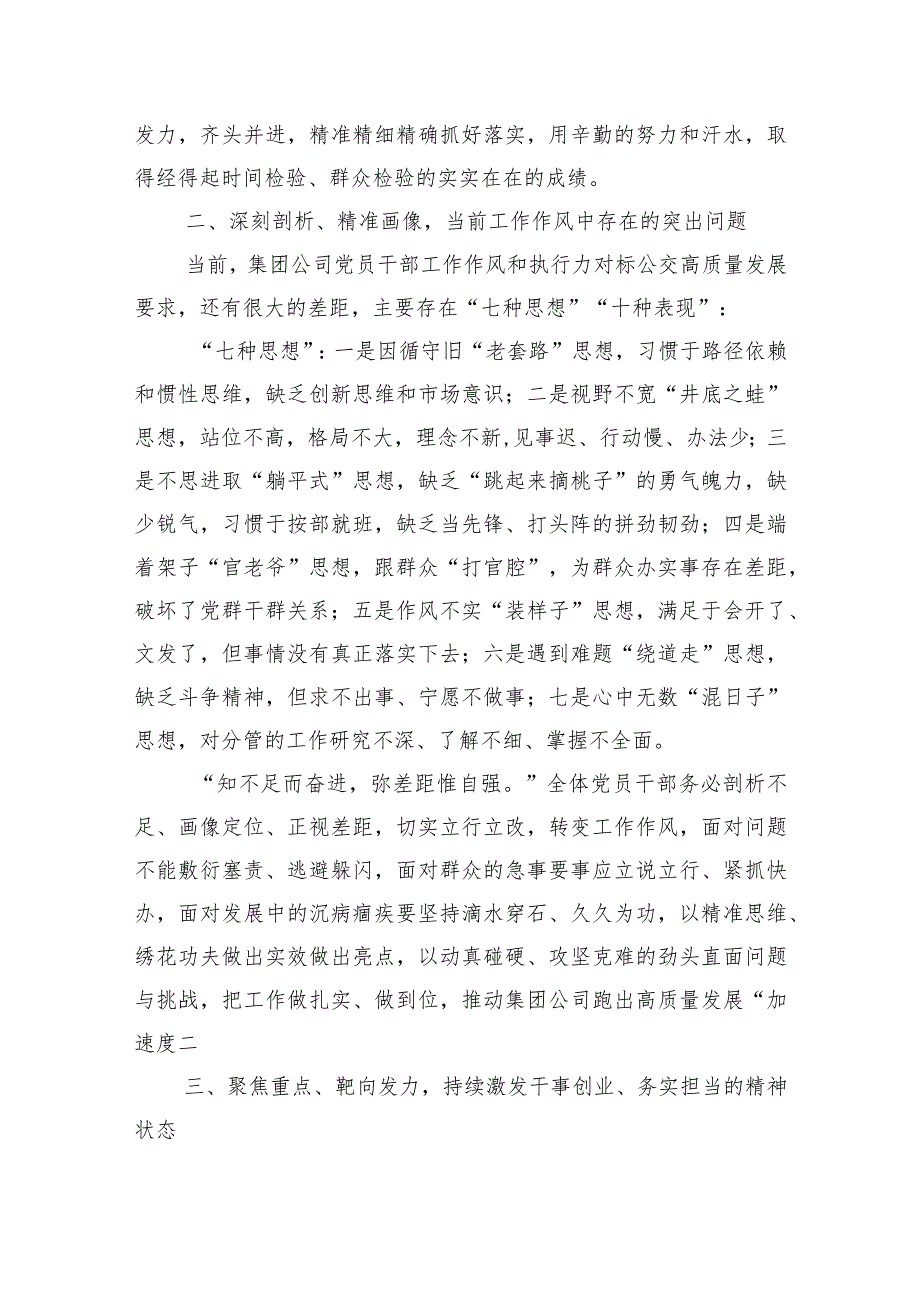 发力，齐头并进，精准精细精确抓好落实，用辛勤的努力和汗水，取
得经得起时间检验、群众检验的实实在在的成绩。
二、深刻剖析、精准画像，当前工作作风中存在的突出问题
当前，集团公司党员干部工作作风和执行力对标公交高质量发展
要求，还有很大的差距，主要存在“七种思想”“十种表现”：
“七种思想”：一是因循守旧“老套路”思想，习惯于路径依赖
和惯性思维，缺乏创新思维和市场意识；二是视野不宽“井底之蛙”
思想，站位不高，格局不大，理念不新,见事迟、行动慢、办法少；三
是不思进取“躺平式”思想，缺乏“跳起来摘桃子”的勇气魄力，缺
少锐气，习惯于按部就班，缺乏当先锋、打头阵的拼劲韧劲；四是端
着架子“官老爷”思想，跟群众“打官腔”，为群众办实事存在差距，
破坏了党群干群关系；五是作风不实“装样子”思想，满足于会开了、
文发了，但事情没有真正落实下去；六是遇到难题“绕道走”思想，
缺乏斗争精神，但求不出事、宁愿不做事；七是心中无数“混日子”
思想，对分管的工作研究不深、了解不细、掌握不全面。
“知不足而奋进，弥差距惟自强。”全体党员干部务必剖析不
足、画像定位、正视差距，切实立行立改，转变工作作风，面对问题
不能敷衍塞责、逃避躲闪，面对群众的急事要事应立说立行、紧抓快
办，面对发展中的沉病痼疾要坚持滴水穿石、久久为功，以精准思维、
绣花功夫做出实效做出亮点，以动真碰硬、攻坚克难的劲头直面问题
与挑战，把工作做扎实、做到位，推动集团公司跑出高质量发展“加
速度二
三、聚焦重点、靶向发力，持续激发干事创业、务实担当的精神
状态